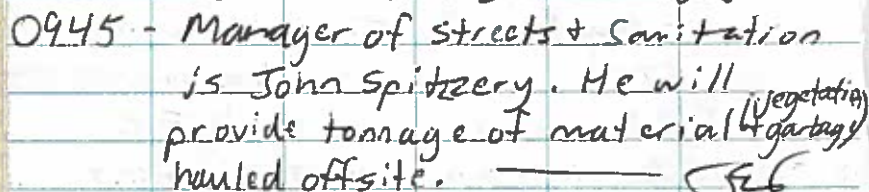 0945 - Manager of streets & Sanitation
is John Spitzzery. He will
provide tonnage of material (vegetation
& garbage)
hauled offsite.